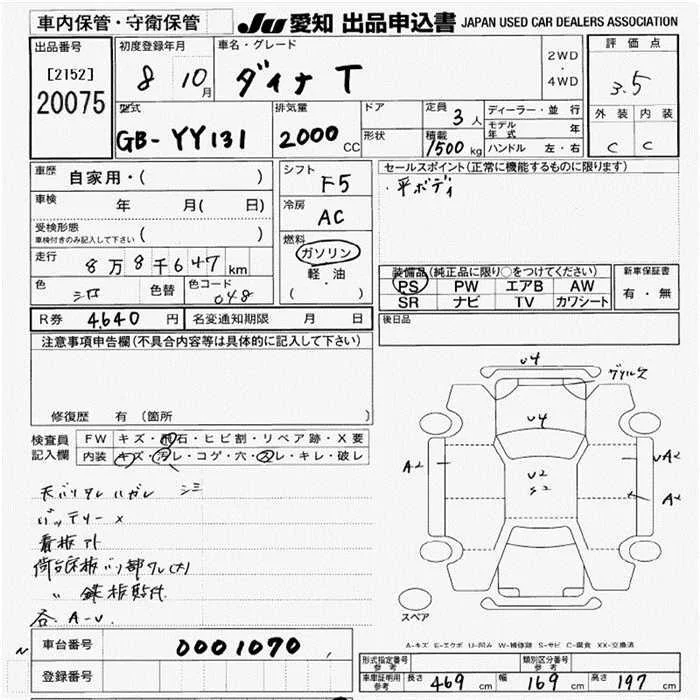 車内保管・守衛保管
JU 愛知 出品申込書 JAPAN USED CAR DEALERS ASSOCIATION
出品番号
[2152]
20075
初度登録年月
8 10月
車名・グレード
ダイナ T
2WD
・
4WD
評価点
3.5
外装 内装
C C
型式
GB-YY131
排気量
2000 CC
ドア
形状
定員 3人
積載 1500 kg
ディーラー・並行
モデル年式 年
ハンドル 左・右
車歴 自家用・( )
車検 年 月( 日)
受検形態
車検付きのみ記入して下さい ( )
走行 8万8千647km
色 シロ 色替 色コード 048
シフト
F5
冷房
AC
燃料
ガソリン
軽・油
( )
セールスポイント(正常に機能するものに限ります)
・平ボディ
装備品(純正品に限り○をつけてください)
PS PW エアB AW
SR ナビ TV カワシート
新車保証書
有・無
R券 4,640 円 名変通知期限 月 日
後日品
注意事項申告欄(不具合内容等は具体的に記入して下さい)
修復歴 有 (箇所 )
検査員記入欄
FW キズ・飛石・ヒビ割・リペア跡・X要
内装 キズ・汚レ・コゲ・穴・スレ・キレ・破レ
天バリタレ ハガレ シミ
バッテリー ×
看板アト
荷台床板バリ部ワレ(大)
〃 鉄板貼付
各 A-U.
U4
U4
U2
A2
UA2
A2
スペア
A-キズ E-エクボ U-凹み W-補修跡 S-サビ C-腐食 XX-交換済
N 車台番号 0001070
登録番号
形式指定番号 参考
類別区分番号 参考
車庫証明用 参考 長さ 469 cm 幅 169 cm 高さ 197 cm